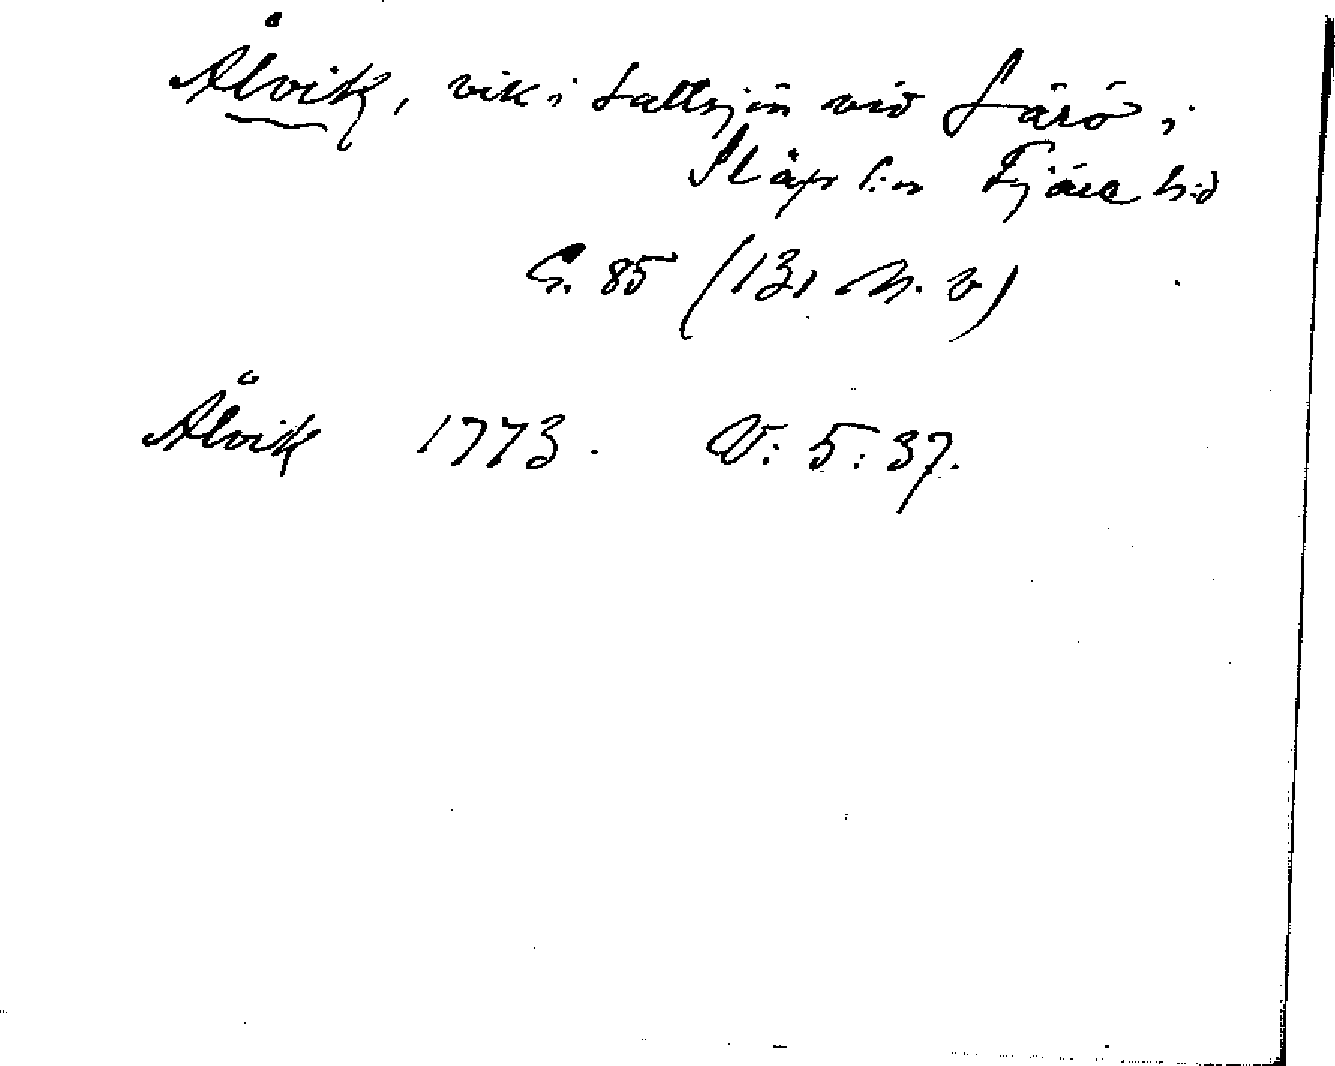 Ålvik, vik i Saltsjön vid Särö i
Släps s:n Fjäre h:d
G. 85 (131 N. v)
Ålvik 1773. W: 5: 37.